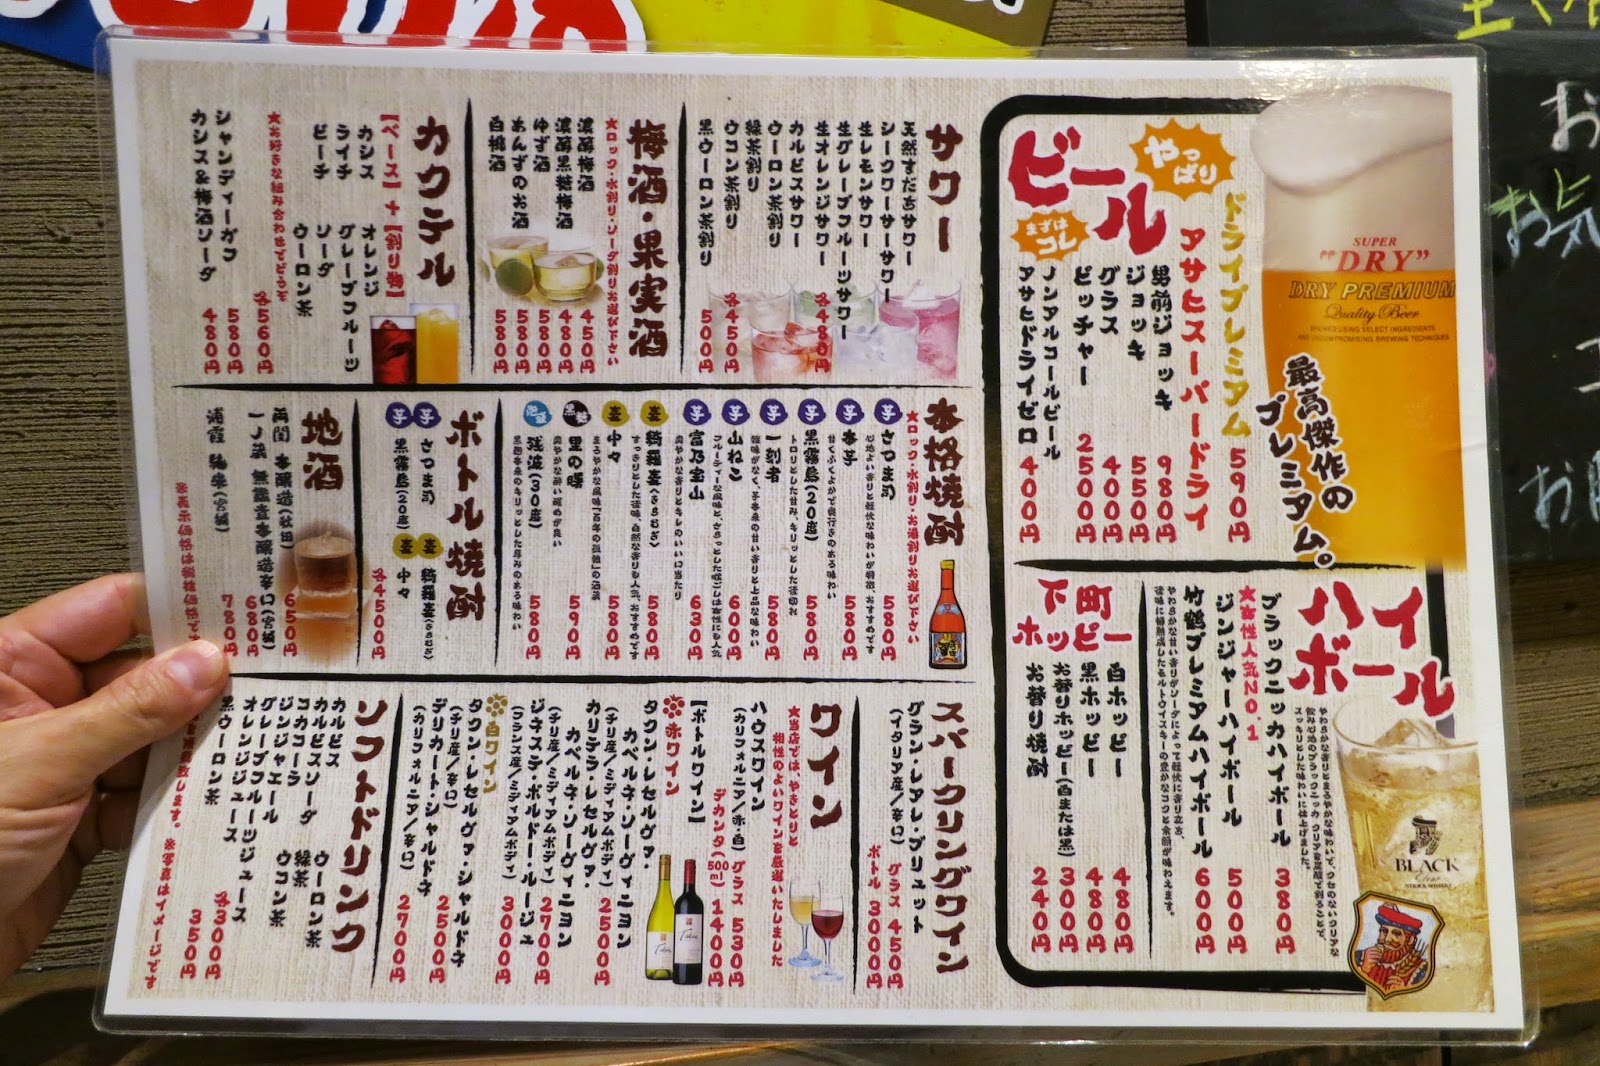 ビール
やっぱり
まずはコレ
ドライプレミアム 590円
アサヒスーパードライ
男前ジョッキ 980円
ジョッキ 550円
グラス 400円
ピッチャー 2500円
ノンアルコールビール
アサヒドライゼロ 400円
SUPER
"DRY"
DRY PREMIUM
Quality Beer
最高傑作の
プレミアム。
ハイボール
ブラックニッカハイボール 380円
やわらかな香りとまろやかな味わいで、クセのないクリアな
飲み心地のブラックニッカ クリアを炭酸で割ることで、
スッキリとした味わいに仕上げました。
★女性人気NO.1
ジンジャーハイボール 500円
竹鶴プレミアムハイボール 600円
やわらかな甘い香りがソーダによって軽快に香り立つ。
BLACK
Clear
NIKKA WHISKY
下町
ホッピー
白ホッピー 480円
黒ホッピー 480円
お替りホッピー(白または黒) 300円
お替り焼酎 240円
サワー
天然すだちサワー
シークワーサーサワー
生レモンサワー
生グレープフルーツサワー
生オレンジサワー 各480円
カルピスサワー
ウーロン茶割り
緑茶割り
ウコン茶割り 各450円
黒ウーロン茶割り 500円
梅酒・果実酒
★ロック・水割り・ソーダ割りお選び下さい
濃醇梅酒 450円
濃醇黒糖梅酒 480円
ゆず酒 580円
あんずのお酒 580円
白桃酒 580円
カクテル
【ベース】+【割り物】
カシス オレンジ
ライチ グレープフルーツ
ピーチ ソーダ
ウーロン茶
★お好きな組み合わせでどうぞ 各560円
シャンディーガフ 580円
カシス&梅酒ソーダ 480円
本格焼酎
★ロック・水割り・お湯割りお選び下さい
芋 さつま司 580円
芋 本芋 580円
芋 黒霧島(20度) 580円
トロリとした甘み、キリッとした後切れ
芋 一刻者 580円
芋 山ねこ 600円
芋 富乃宝山 630円
麦 綺羅麦(きらむぎ) 580円
麦 中々 580円
まろやかな風味「百年の孤独」の酒蔵
黒糖 里の曙 590円
泡盛 残波(30度) 580円
ボトル焼酎
芋 さつま司
芋 黒霧島(20度)
麦 綺羅麦(きらむぎ)
麦 中々
各4500円
地酒
両関 本醸造(秋田) 650円
一ノ蔵 無鑑査本醸造辛口(宮城) 680円
浦霞 純米(宮城) 780円
スパークリングワイン
グラン・レアレ・ブリュット
(イタリア産/辛口)
グラス 450円
ボトル 3000円
ワイン
★当店では、やきとりと
相性のよいワインを厳選いたしました
ハウスワイン
(カリフォルニア/赤・白)
グラス 530円
デカンタ(500ml) 1400円
【ボトルワイン】
赤ワイン
タウン・レセルヴァ・
カベルネ・ソーヴィニヨン
(チリ産/ミディアムボディ) 2500円
カリテラ・レセルヴァ・
カベルネ・ソーヴィニヨン
(チリ産/ミディアムボディ) 2700円
ジネステ・ボルドー・ルージュ
(フランス産/ミディアムボディ) 3000円
白ワイン
タウン・レセルヴァ・シャルドネ
(チリ産/辛口) 2500円
デリカート・シャルドネ
(カリフォルニア/辛口) 2700円
ソフトドリンク
カルピス
カルピスソーダ
コカコーラ
ジンジャエール
グレープフルーツジュース
オレンジジュース
ウーロン茶
緑茶
ウコン茶
各300円
黒ウーロン茶 350円
※表示価格は税抜価格で
致します。※写真はイメージです